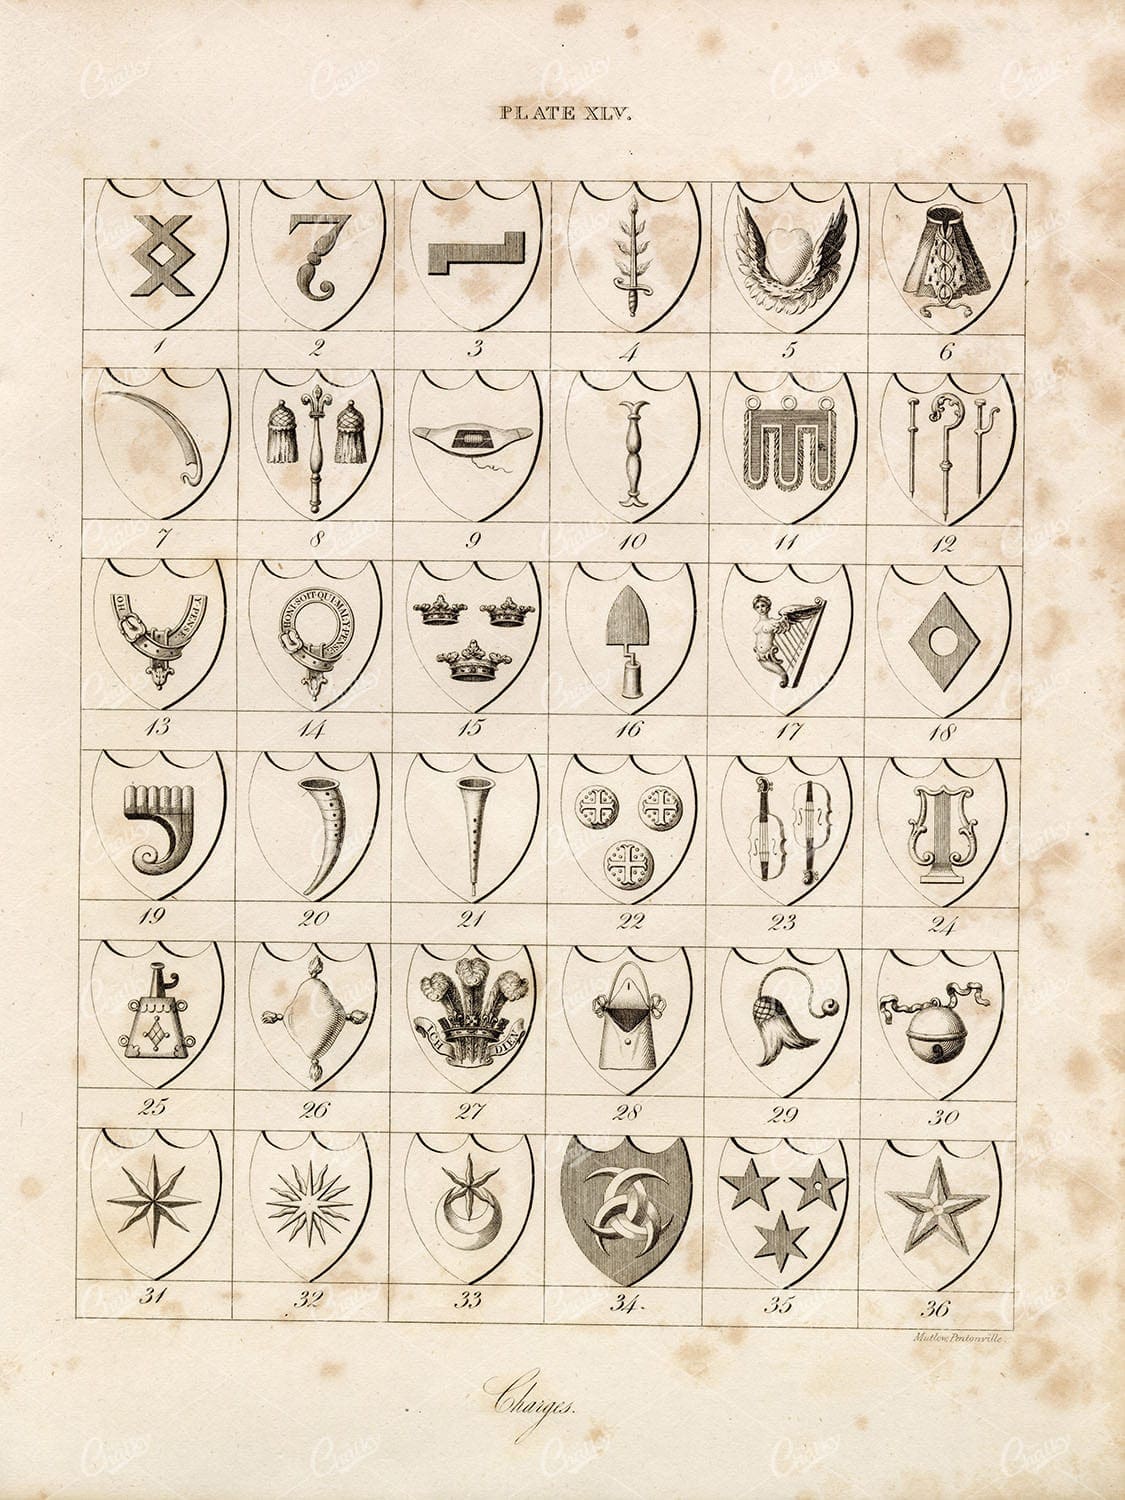 PLATE XLV.
1 2 3 4 5 6
7 8 9 10 11 12
HO Y·PENSE HONI·SOIT·QUI·MAL·Y·PENSE
13 14 15 16 17 18
19 20 21 22 23 24
ICH DIEN
25 26 27 28 29 30
31 32 33 34. 35 36
Mutlow, Pentonville.
Charges.
Chalky